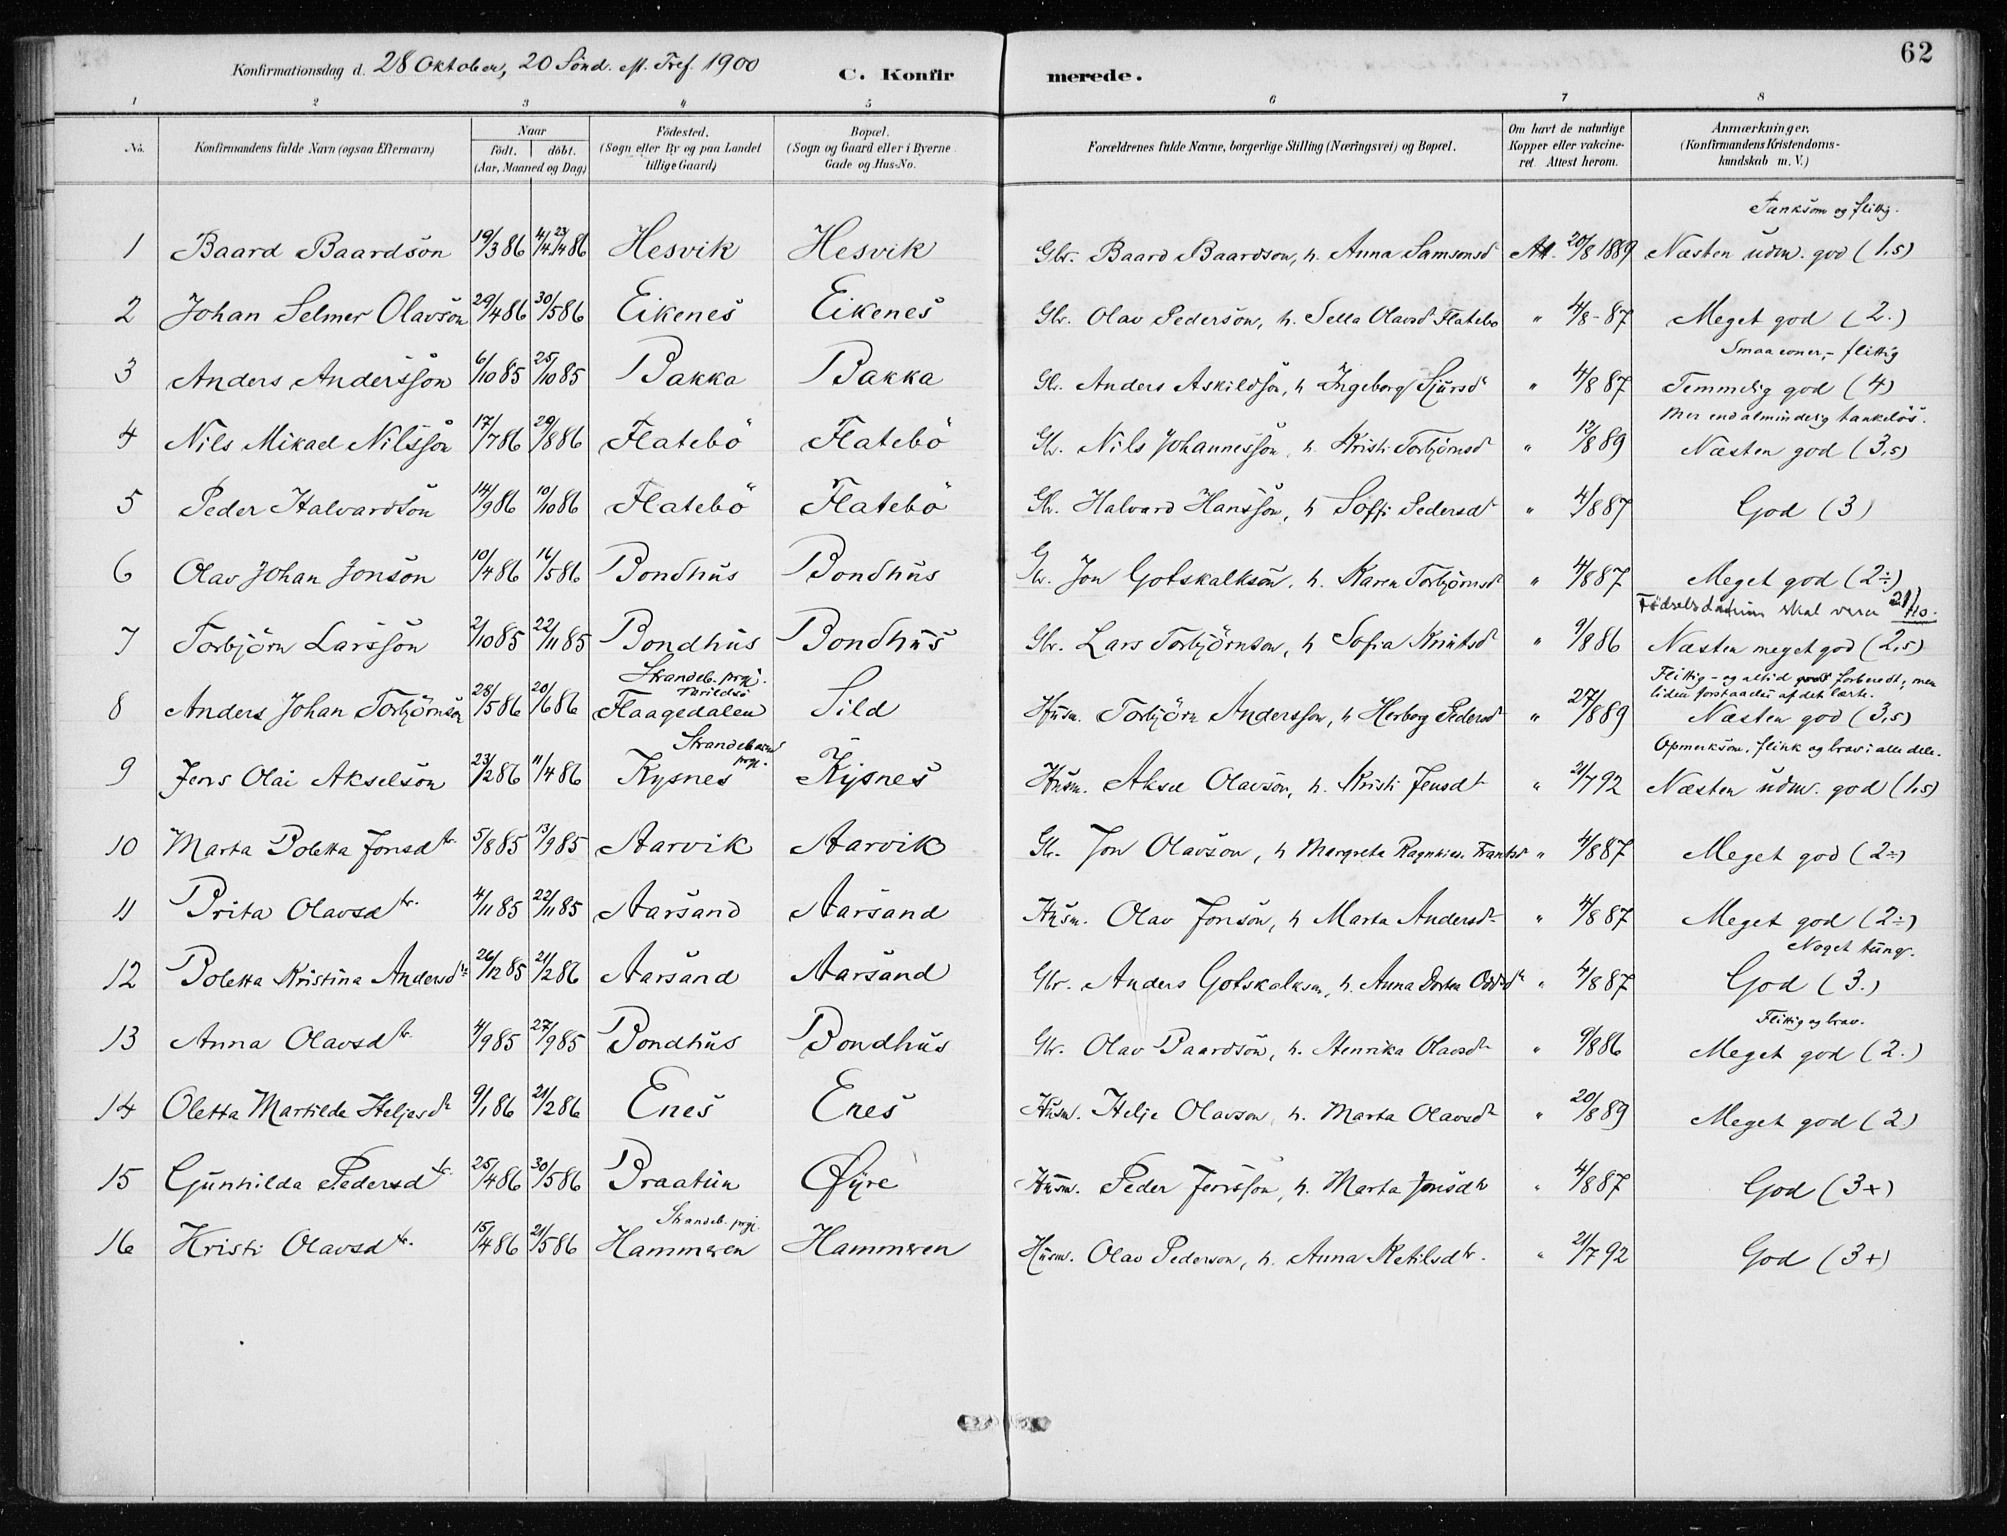 62
Konfirmationsdag d. 28 Oktober, 20 Sönd. eft. Tref. 1900
C. Konfirmerede.
1 2 3 4 5 6 7 8
No. | Konfirmandens fulde Navn (ogsaa Efternavn) | Naar födt. | döbt. (Aar, Maaned og Dag) | Födested. (Sogn eller By og paa Landet tillige Gaard) | Bopæl. (Sogn og Gaard eller i Byerne Gade og Hus-No. | Forældrenes fulde Navne, borgerlige Stilling (Næringsvei) og Bopæl. | Om havt de naturlige Kopper eller vakcineret. Attest herom. | Anmærkninger. (Konfirmandens Kristendomskundskab m. V.)
Tænksom og flittig.
1 Baard Baardson 19/3 86 4/4 86 Hesvik Hesvik Gbr. Baard Baardson, h. Anna Samsonsd At. 20/8 1889 Næsten udm. god (1,5)
2 Johan Selmer Olavson 29/4 86 30/5 86 Eikenes Eikenes Gbr. Olav Pederson, h. Sella Olavsd Flatebö " 4/8 - 87 Meget god (2.)
Smaa evner, - flittig
3 Anders Andersson 6/10 85 25/10 85 Bakka Bakka Gb. Anders Askildson, h Ingeborg Sjursd " 4/8 87 Temmelig god (4)
Mer end almindelig tankelös.
4 Nils Mikael Nilsson 17/7 86 29/8 86 Flatebö Flatebö Gbr. Nils Johannesson, h. Kristi Torbjörnsd " 12/8 89 Næsten god (3,5)
5 Peder Halvardson 14/9 86 10/10 86 Flatebö Flatebö Gbr. Halvard Hansson, h Söffi Pedersd " 4/8 87 God (3)
6 Olav Johan Jonson 10/4 86 16/5 86 Bondhus Bondhus Gbr. Jon Gotskalkson, h. Karen Torbjörnsd " 4/8 87 Meget god (2÷)
Födselsdatum skal være 21/10.
7 Torbjörn Larsson 2/10 85 22/11 85 Bondhus Bondhus Gbr. Lars Torbjörnson, h Sofia Knutsd " 9/8 86 Næsten meget god (2,5)
Strandeb. prgj.
Flittig - og altid godt forberedt, men
liden forstaaelse af det lærte.
8 Anders Johan Torbjörnson 28/5 86 20/6 86 Flaagedalen Sild Husm. Torbjörn Andersson, h Herborg Pedersd " 27/8 89 Næsten god (3,5)
Strandebarm prgj.
Opmerksom, flink og brav i alle dele.
9 Jens Olai Akselson 23/2 86 11/4 86 Kysnes Kysnes Husm. Aksel Olavson, h. Kristi Jensd " 21/7 92 Næsten udm. god (1,5)
10 Marta Boletta Jonsdtr. 5/8 85 13/9 85 Aarvik Aarvik Gbr. Jon Olavson, h Margreta Ragnhild Frantsd " 4/8 87 Meget god (2÷)
11 Brita Olavsdtr. 4/11 85 22/11 85 Aarsand Aarsand Husm. Olav Jonson, h Marta Andersd " 4/8 87 Meget god (2÷)
Noget tung.
12 Boletta Kristina Andersdtr 26/12 85 21/2 86 Aarsand Aarsand Gbr. Anders Gotskalkson, h. Anna Dortea Oddsd " 4/8 87 God (3.)
Flittig og brav.
13 Anna Olavsdtr. 4/9 85 27/9 85 Bondhus Bondhus Gbr. Olav Baardson, h. Henrika Olavsd " 9/8 86 Meget god (2.)
14 Oletta Martilda Heljesd 9/1 86 21/2 86 Enes Enes Husm. Helje Olavson, h. Marta Olavsd " 20/8 89 Meget god (2)
15 Gunhilda Pedersdtr. 25/4 86 30/5 86 Braatun Øyre Husm. Peder Jensson, h. Marta Jonsdtr " 4/8 87 God (3+)
Strandeb. prgj.
16 Kristi Olavsdtr. 15/4 86 21/5 86 Hammeren Hammeren Husm. Olav Pederson, h. Anna Ketilsdtr. " 21/7 92 God (3+)